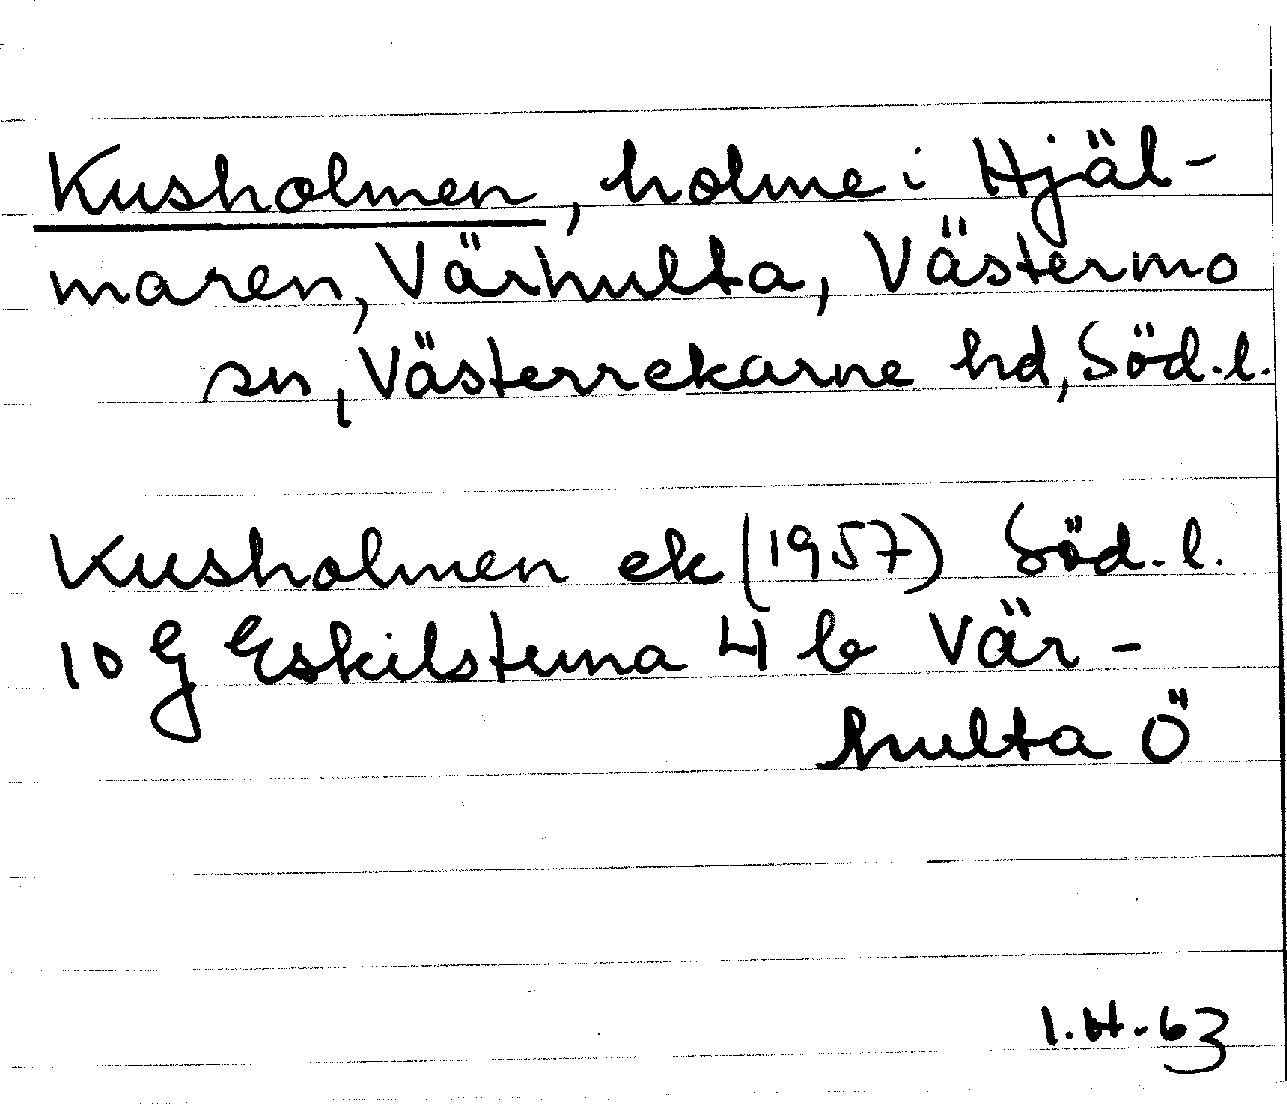 Kusholmen, holme i Hjäl-
maren, Värhulta, Västermo
sn, Västerrekarne hd, Söd.l.
Kusholmen ek (1957) Söd.l.
10 G Eskilstuna 4 b Vär-
hulta Ö
I.H.-63